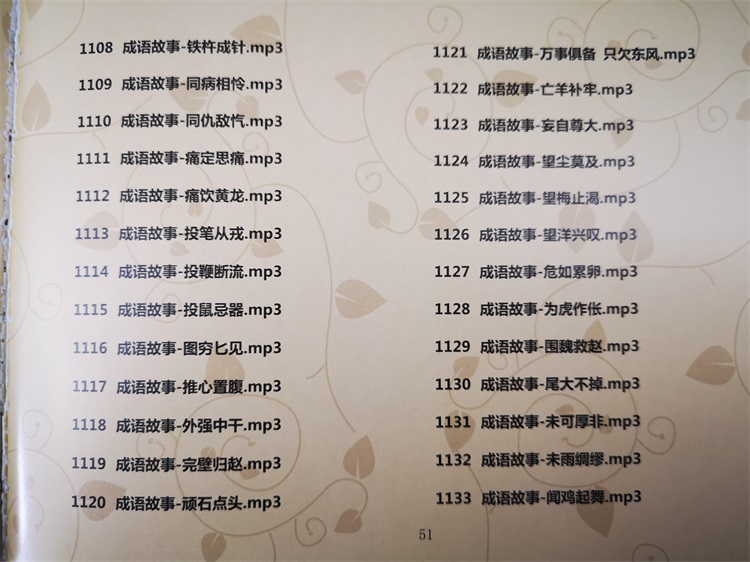 1108 成语故事-铁杵成针.mp3
1109 成语故事-同病相怜.mp3
1110 成语故事-同仇敌忾.mp3
1111 成语故事-痛定思痛.mp3
1112 成语故事-痛饮黄龙.mp3
1113 成语故事-投笔从戎.mp3
1114 成语故事-投鞭断流.mp3
1115 成语故事-投鼠忌器.mp3
1116 成语故事-图穷匕见.mp3
1117 成语故事-推心置腹.mp3
1118 成语故事-外强中干.mp3
1119 成语故事-完璧归赵.mp3
1120 成语故事-顽石点头.mp3
1121 成语故事-万事俱备 只欠东风.mp3
1122 成语故事-亡羊补牢.mp3
1123 成语故事-妄自尊大.mp3
1124 成语故事-望尘莫及.mp3
1125 成语故事-望梅止渴.mp3
1126 成语故事-望洋兴叹.mp3
1127 成语故事-危如累卵.mp3
1128 成语故事-为虎作伥.mp3
1129 成语故事-围魏救赵.mp3
1130 成语故事-尾大不掉.mp3
1131 成语故事-未可厚非.mp3
1132 成语故事-未雨绸缪.mp3
1133 成语故事-闻鸡起舞.mp3
51